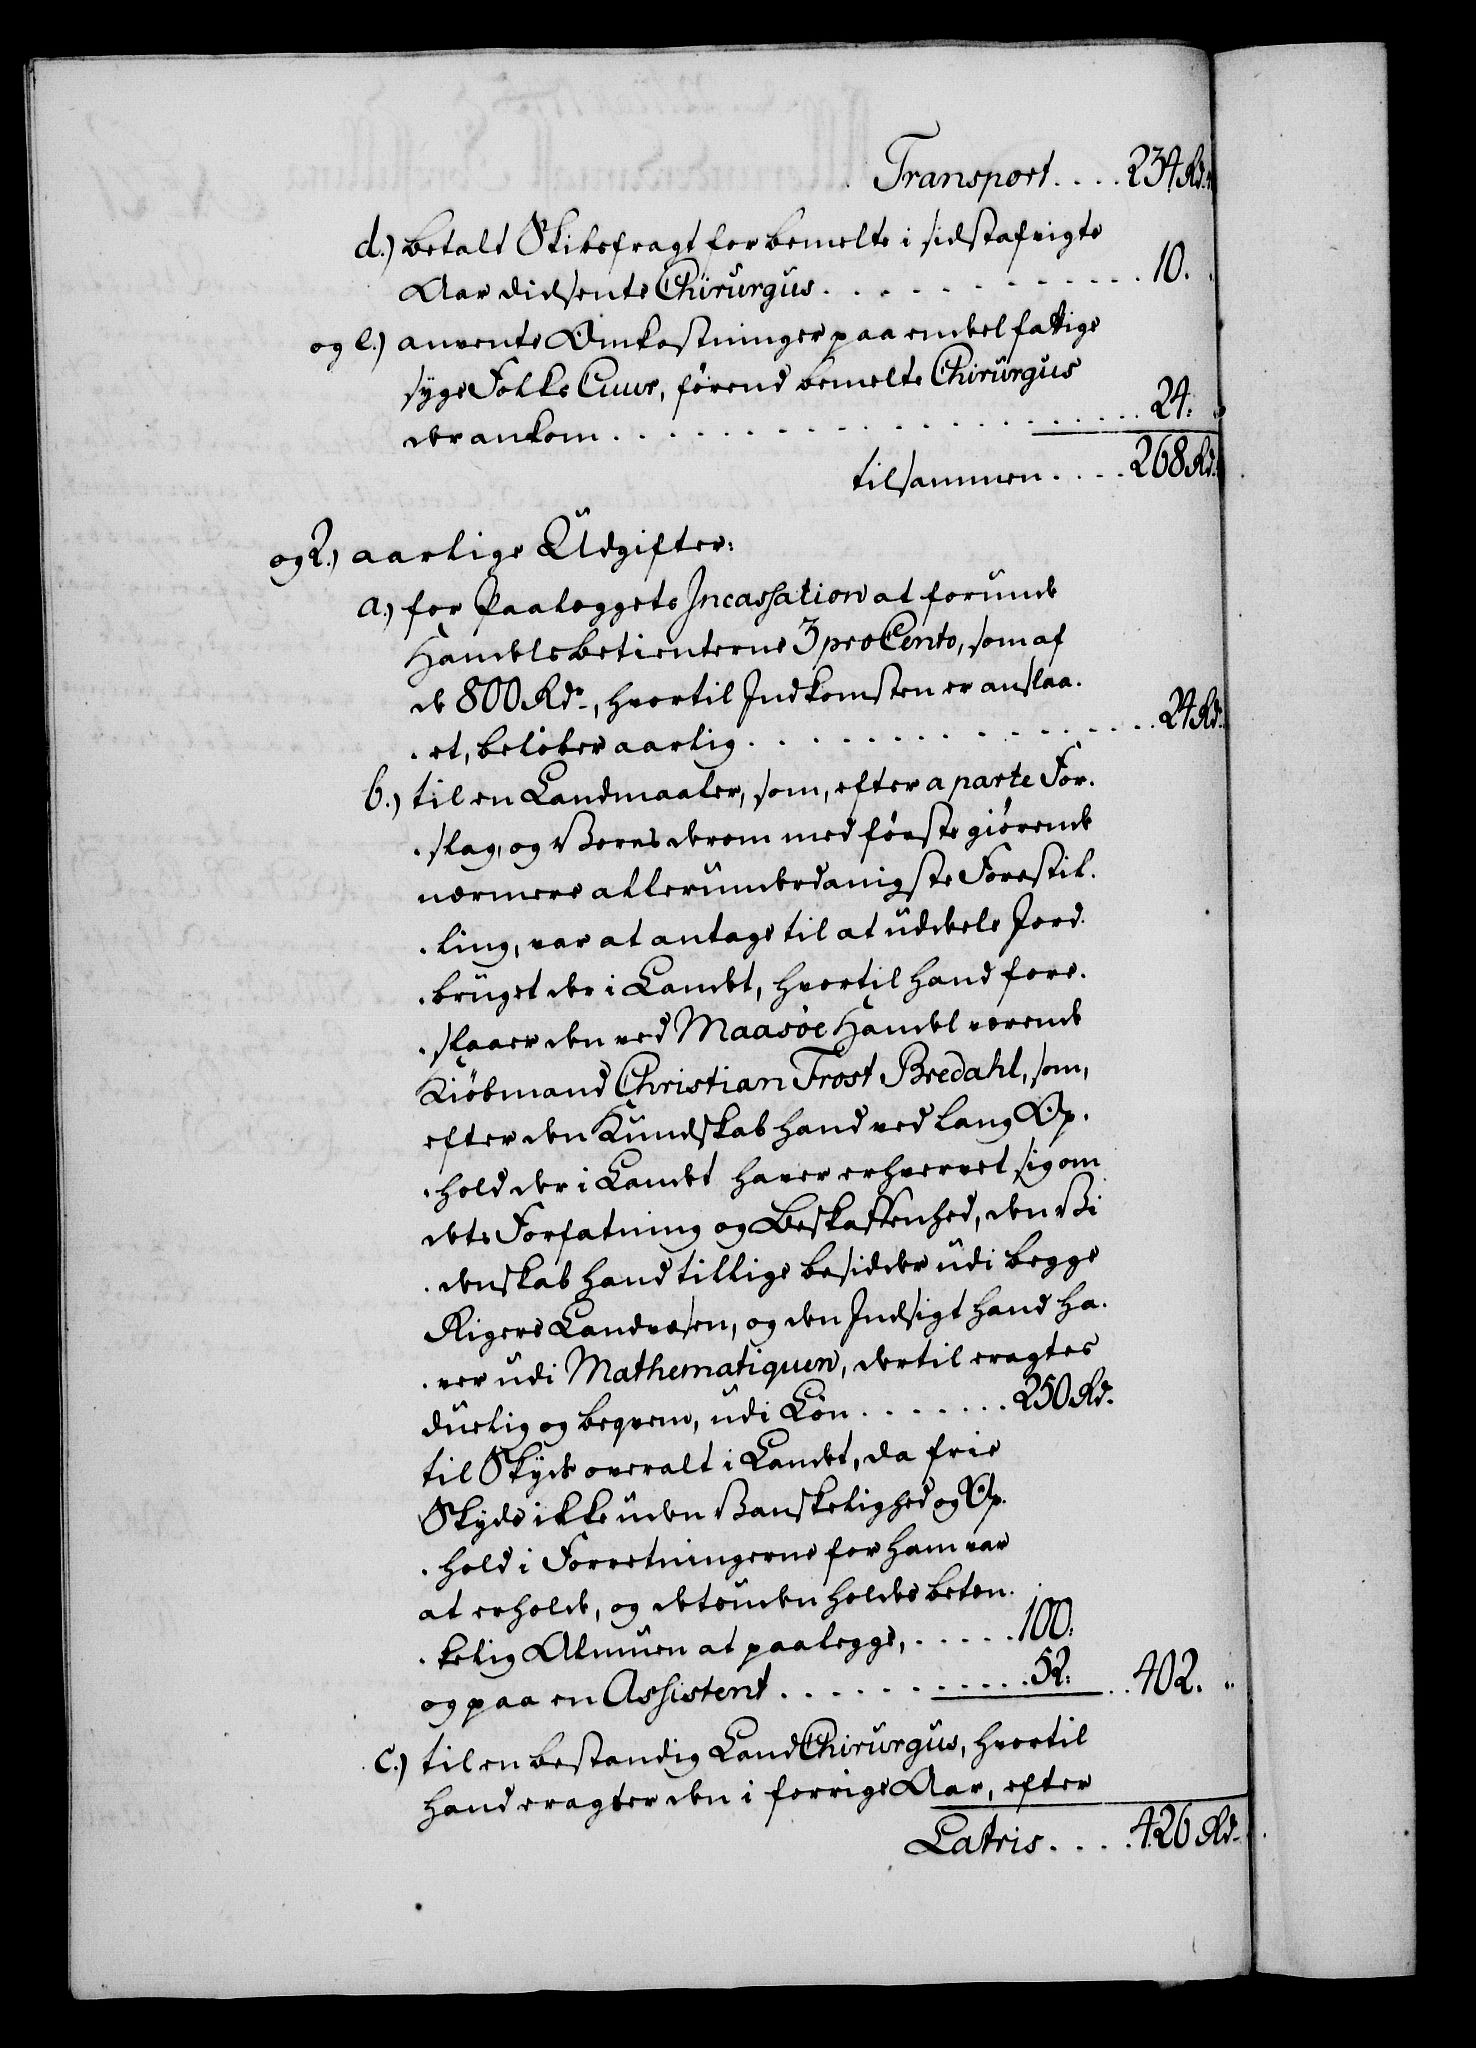 Transport....234 Rd.
d.) betalt Skibsfragt for bemelte i sidstafvigte
Aar didsente Chirurgus............10.
og e.) anvente Omkostninger paa endeel fattige
syge Folks Cuur, førend bemelte Chirurgus
der ankom....................24.
tilsammen....268 Rd.
og 2.) aarlige Udgifter:
a.) for Paaleggets Incassation at forunde
Handelsbetienterne 3 pro Cento, som af
de 800 Rdr, hvortil Indkomsten er anslaa-
-et, beløber aarlig................24 Rd.
b.) til en Landmaaler, som, efter a parte For-
-slag, og Vores derom med første giørende
nærmere allerunderdanigste Forestil-
-ling, var at antage til at uddeele Jord-
-bruget der i Landet, hvortil hand fore-
-slaaer den ved Maasøe Handel værende
Kiøbmand Christian Frost Bredahl, som,
efter den Kundskab hand ved lang Op-
-hold der i Landet haver erhvervet sig om
dets Forfatning og Beskaffenhed, den Vi-
-denskab hand tillige besidder udi begge
Rigers Landvæsen, og den Indsigt hand ha-
-ver udi Mathematiquen, dertil eragtes
duelig og beqvem, udi Løn........250 Rd.
til Skyds overalt i Landet, da frie
Skyds ikke uden Vanskelighed og Op-
-hold i Forretningerne for ham var
at erholde, og desuden holdes beten-
-kelig Almuen at paalegge,......100.
og paa en Assistent............52...402.
c.) til en bestandig Land Chirurgus, hvortil
hand eragter den i forrige Aar, efter
Latris.....426 Rd.